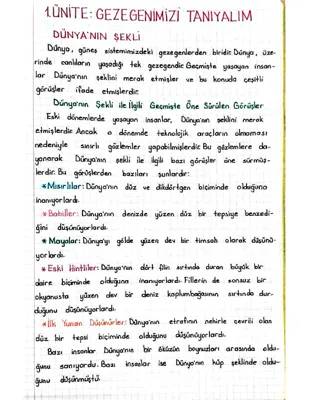 1.ÜNİTE: GEZEGENİMİZİ TANIYALIM
DÜNYA'NIN ŞEKLİ
Dünya, güneş sistemimizdeki gezegenlerden biridir. Dünya, üze-
rinde canlıların yaşadığı tek gezegendir. Geçmişte yaşayan insan-
lar Dünya'nın şeklini merak etmişler ve bu konuda çeşitli
görüşler ifade etmişlerdir.
Dünya'nın Şekli ile İlgili Geçmişte Öne Sürülen Görüşler
Eski dönemlerde yaşayan insanlar, Dünya'nın şeklini merak
etmişlerdir. Ancak o dönemde teknolojik araçların olmaması
nedeniyle sınırlı gözlemler yapabilmişlerdir. Bu gözlemlere da-
yanarak Dünya'nın şekli ile ilgili bazı görüşler öne sürmüş-
lerdir. Bu görüşlerden bazıları şunlardır:
*Mısırlılar: Dünya'nın düz ve dikdörtgen biçiminde olduğuna
inanıyorlardı.
*Babiller: Dünya'nın denizde yüzen düz bir tepsiye benzedi-
ğini düşünüyorlardı.
*Mayalar: Dünya'yı gölde yüzen dev bir timsah olarak düşünü-
yorlardı.
*Eski Hintliler: Dünya'nın dört filin sırtında duran büyük bir
daire biçiminde olduğuna inanıyorlardı. Fillerin de sonsuz bir
okyanusta yüzen dev bir deniz kaplumbağasının sırtında dur-
duğunu düşünüyorlardı.
*İlk Yunan Düşünürler: Dünya'nın etrafının nehirle çevrili olan
düz bir tepsi biçiminde olduğunu düşünüyorlardı.
Bazı insanlar Dünya'nın bir öküzün boynuzları arasında oldu-
ğunu sanıyordu. Bazı insanlar ise Dünya'nın küp şeklinde oldu-
ğunu düşünmüştü.